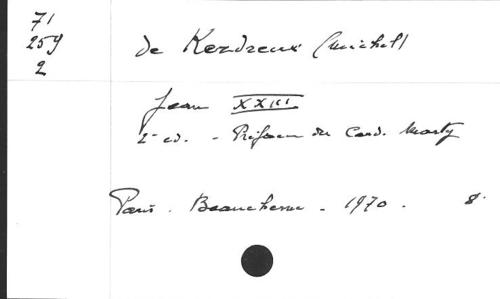 71
259
2
de Kerdreux (Michel)
Jean XXIII
2e ed. - Préface du Card. Marty
Paris. Beauchesne - 1970. 8°